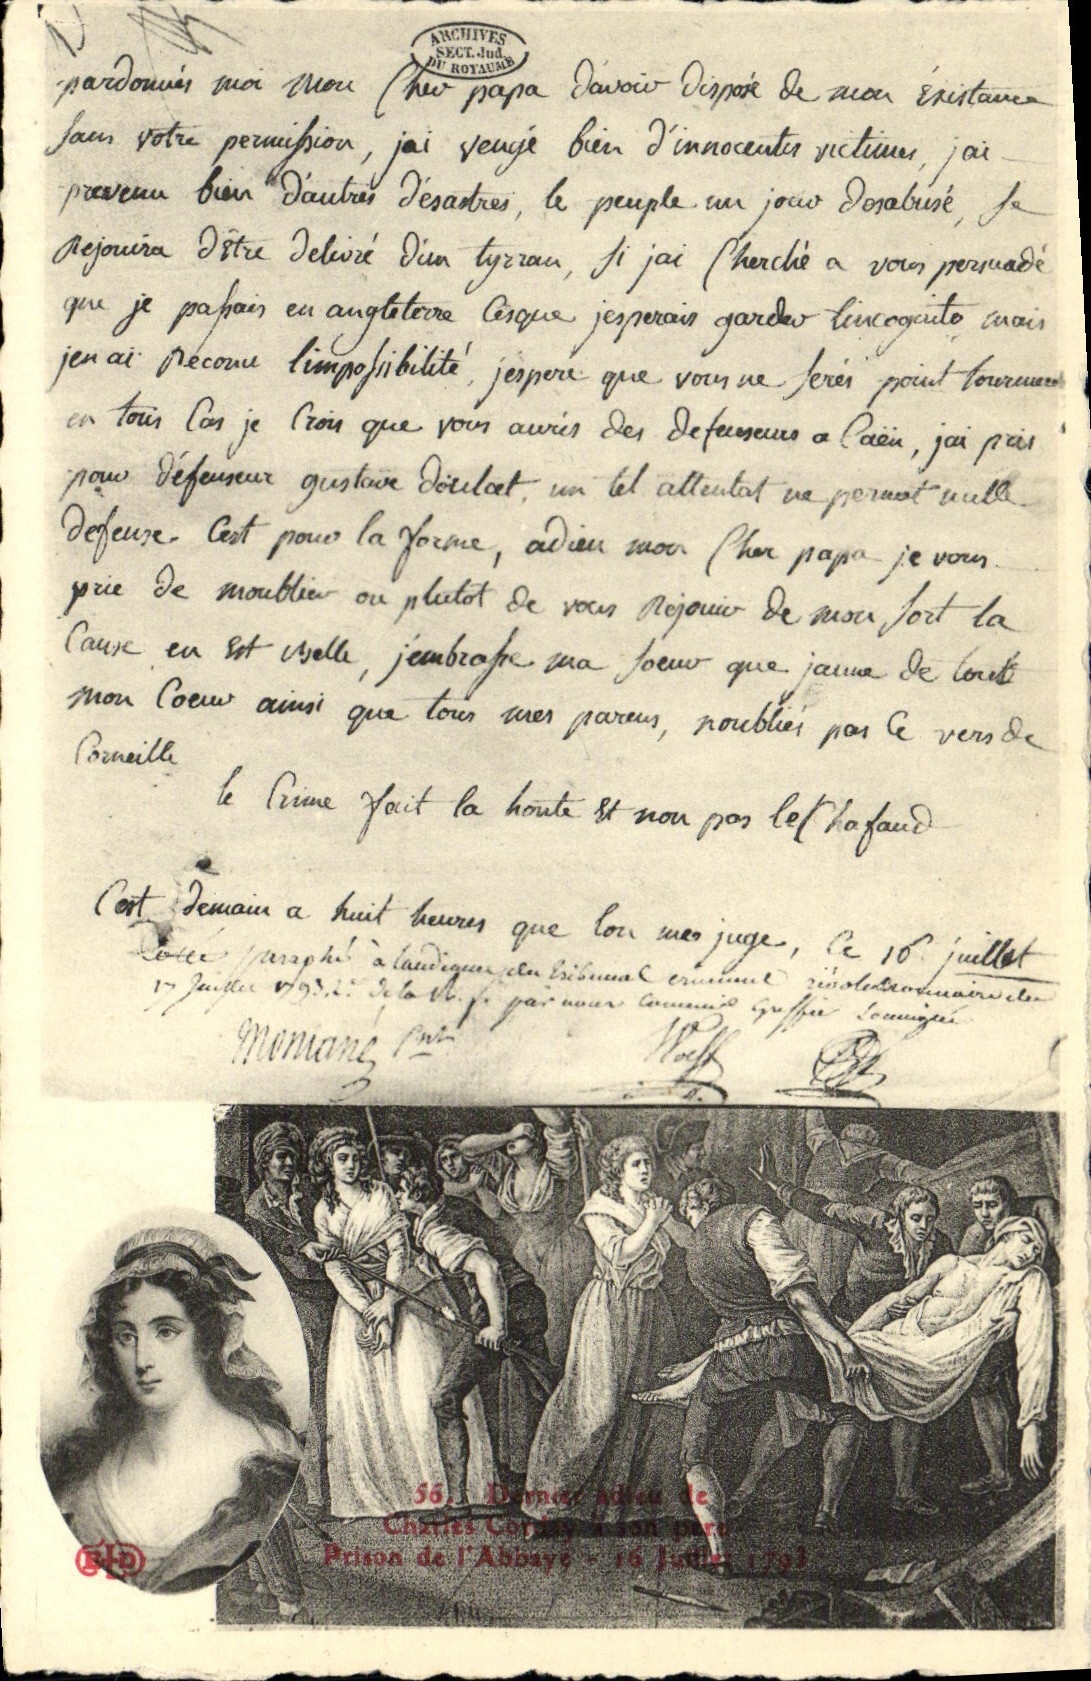 ARCHIVES
SECT. Jud.
DU ROYAUME
pardonnés moi mon Cher papa d'avoir disposé de mon Existance
sans votre permission, jai vengé bien d'innocentes victimes, jai
prevenu bien d'autres désastres, le peuple un jour desabusé, se
Rejouira d'être delivré d'un tyrran, si jai Cherché a vous persuadé
que je passais en angleterre Cesque jesperais garder lincognito mais
jen ai Reconu limpossibilité, jéspere que vous ne serés point tourmenté
en tous Cas je Crois que vous aurés des defenseurs a Caën, jai pris
pour défenseur gustave doulcet, un tel attentat ne permet nulle
defense. C'est pour la forme, adieu mon Cher papa je vous
prie de moublier ou plutot de vous Rejouir de mon sort la
Cause en Est belle, j'embrasse ma soeur que jaime de tout
mon Coeur ainsi que tous mes parens, noubliés pas Ce vers de
Corneille
le Crime fait la honte Et non pas lEChafaud
C'est demain a huit heures que lon me juge, Ce 16 juillet
paraphé à laudience du tribunal criminel révolutionnaire du
17 Juillet 1793. 2e de la R. f. par nous Commis Greffier soussigné
Montané Pnt
Wolff
56. Dernier adieu de
Charles Corday à son père
Prison de l'Abbaye - 16 Juillet 1793
ELD